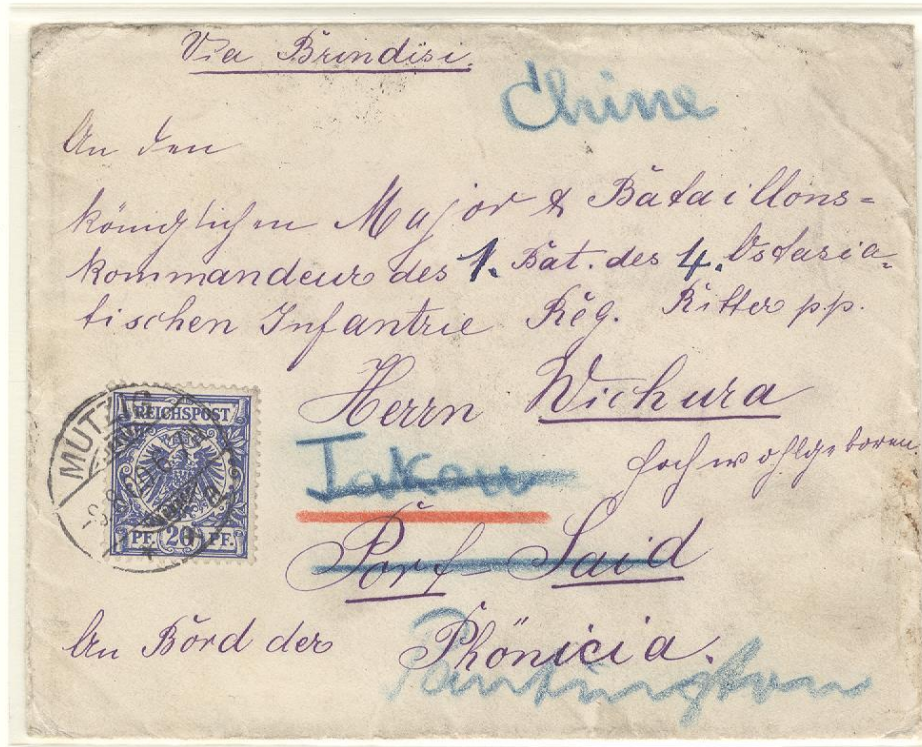 Via Brindisi.
Chine
An den
königlichen Major & Bataillons-
kommandeur des 1. Bat. des 4. Ostasia-
tischen Infantrie Rég. Ritter pp.
Herrn Wichura
hochwohlgeboren.
Takou
Port-Said
An Bord der Phönicia.
MUTZIG
REICHSPOST
PF. 20 PF.